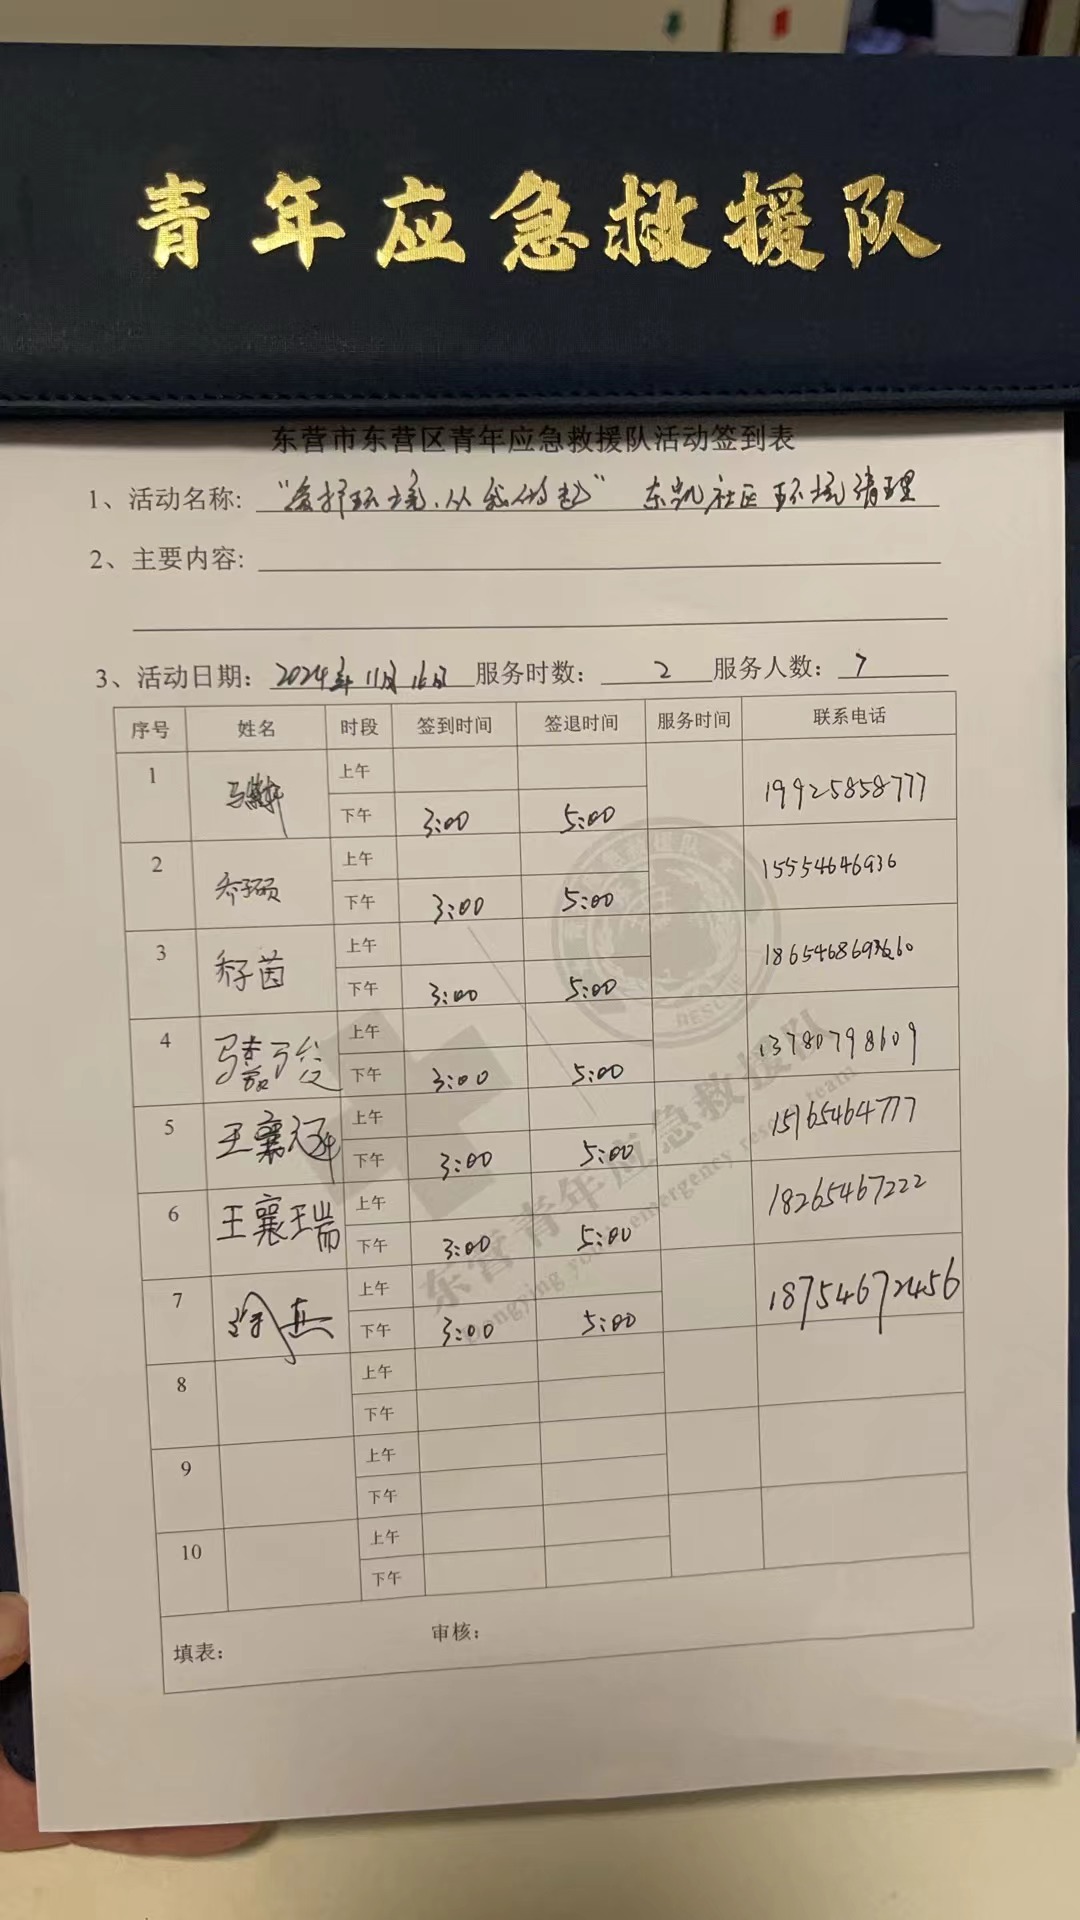 青年应急救援队
东营市东营区青年应急救援队活动签到表
1、活动名称: "爱护环境、从我做起" 东凯社区环境清理
2、主要内容:
3、活动日期: 2024年11月16日 服务时数: 2 服务人数: 7
序号 姓名 时段 签到时间 签退时间 服务时间 联系电话
1 上午
下午 3:00 5:00 19925858777
2 乔子硕 上午
下午 3:00 5:00 15554646936
3 乔子茵 上午
下午 3:00 5:00
4 上午
下午 3:00 5:00 13780798609
5 王襄 上午
下午 3:00 5:00 15165464777
6 王襄瑞 上午
下午 3:00 5:00 18265467222
7 徐燕 上午
下午 3:00 5:00 18754672456
8 上午
下午
9 上午
下午
10 上午
下午
填表: 审核:
东营青年应急救援队
Dongying youth emergency rescue team
RESCUE